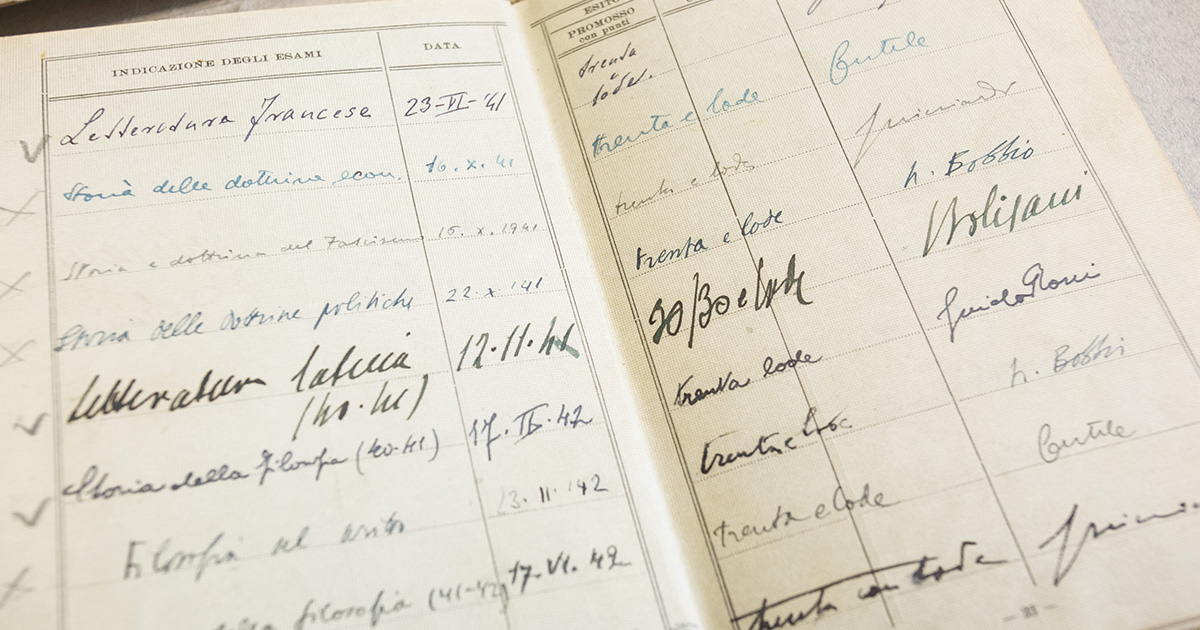 INDICAZIONE DEGLI ESAMI
DATA
Letteratura Francese 23-VI-'41
Storia delle dottrine econ. 16.x.41
Storia e dottrina del Fascismo 16.x.1941
Storia delle dottrine politiche 22.x.'41
Letteratura latina 12.11.41
(40.41)
Storia della Filosofia (40-41) 17.II.42
Filosofia del diritto 23.II.'42
della filosofia (41-42) 17.VI.42
ESITO
PROMOSSO
con punti
trenta
e
lode.
trenta e lode Gentile
trenta e lode
trenta e lode N. Bobbio
30/30 e lode
trenta lode Guido Rossi
trenta e lode N. Bobbio
trenta e lode Gentile
trenta con lode
— 21 —